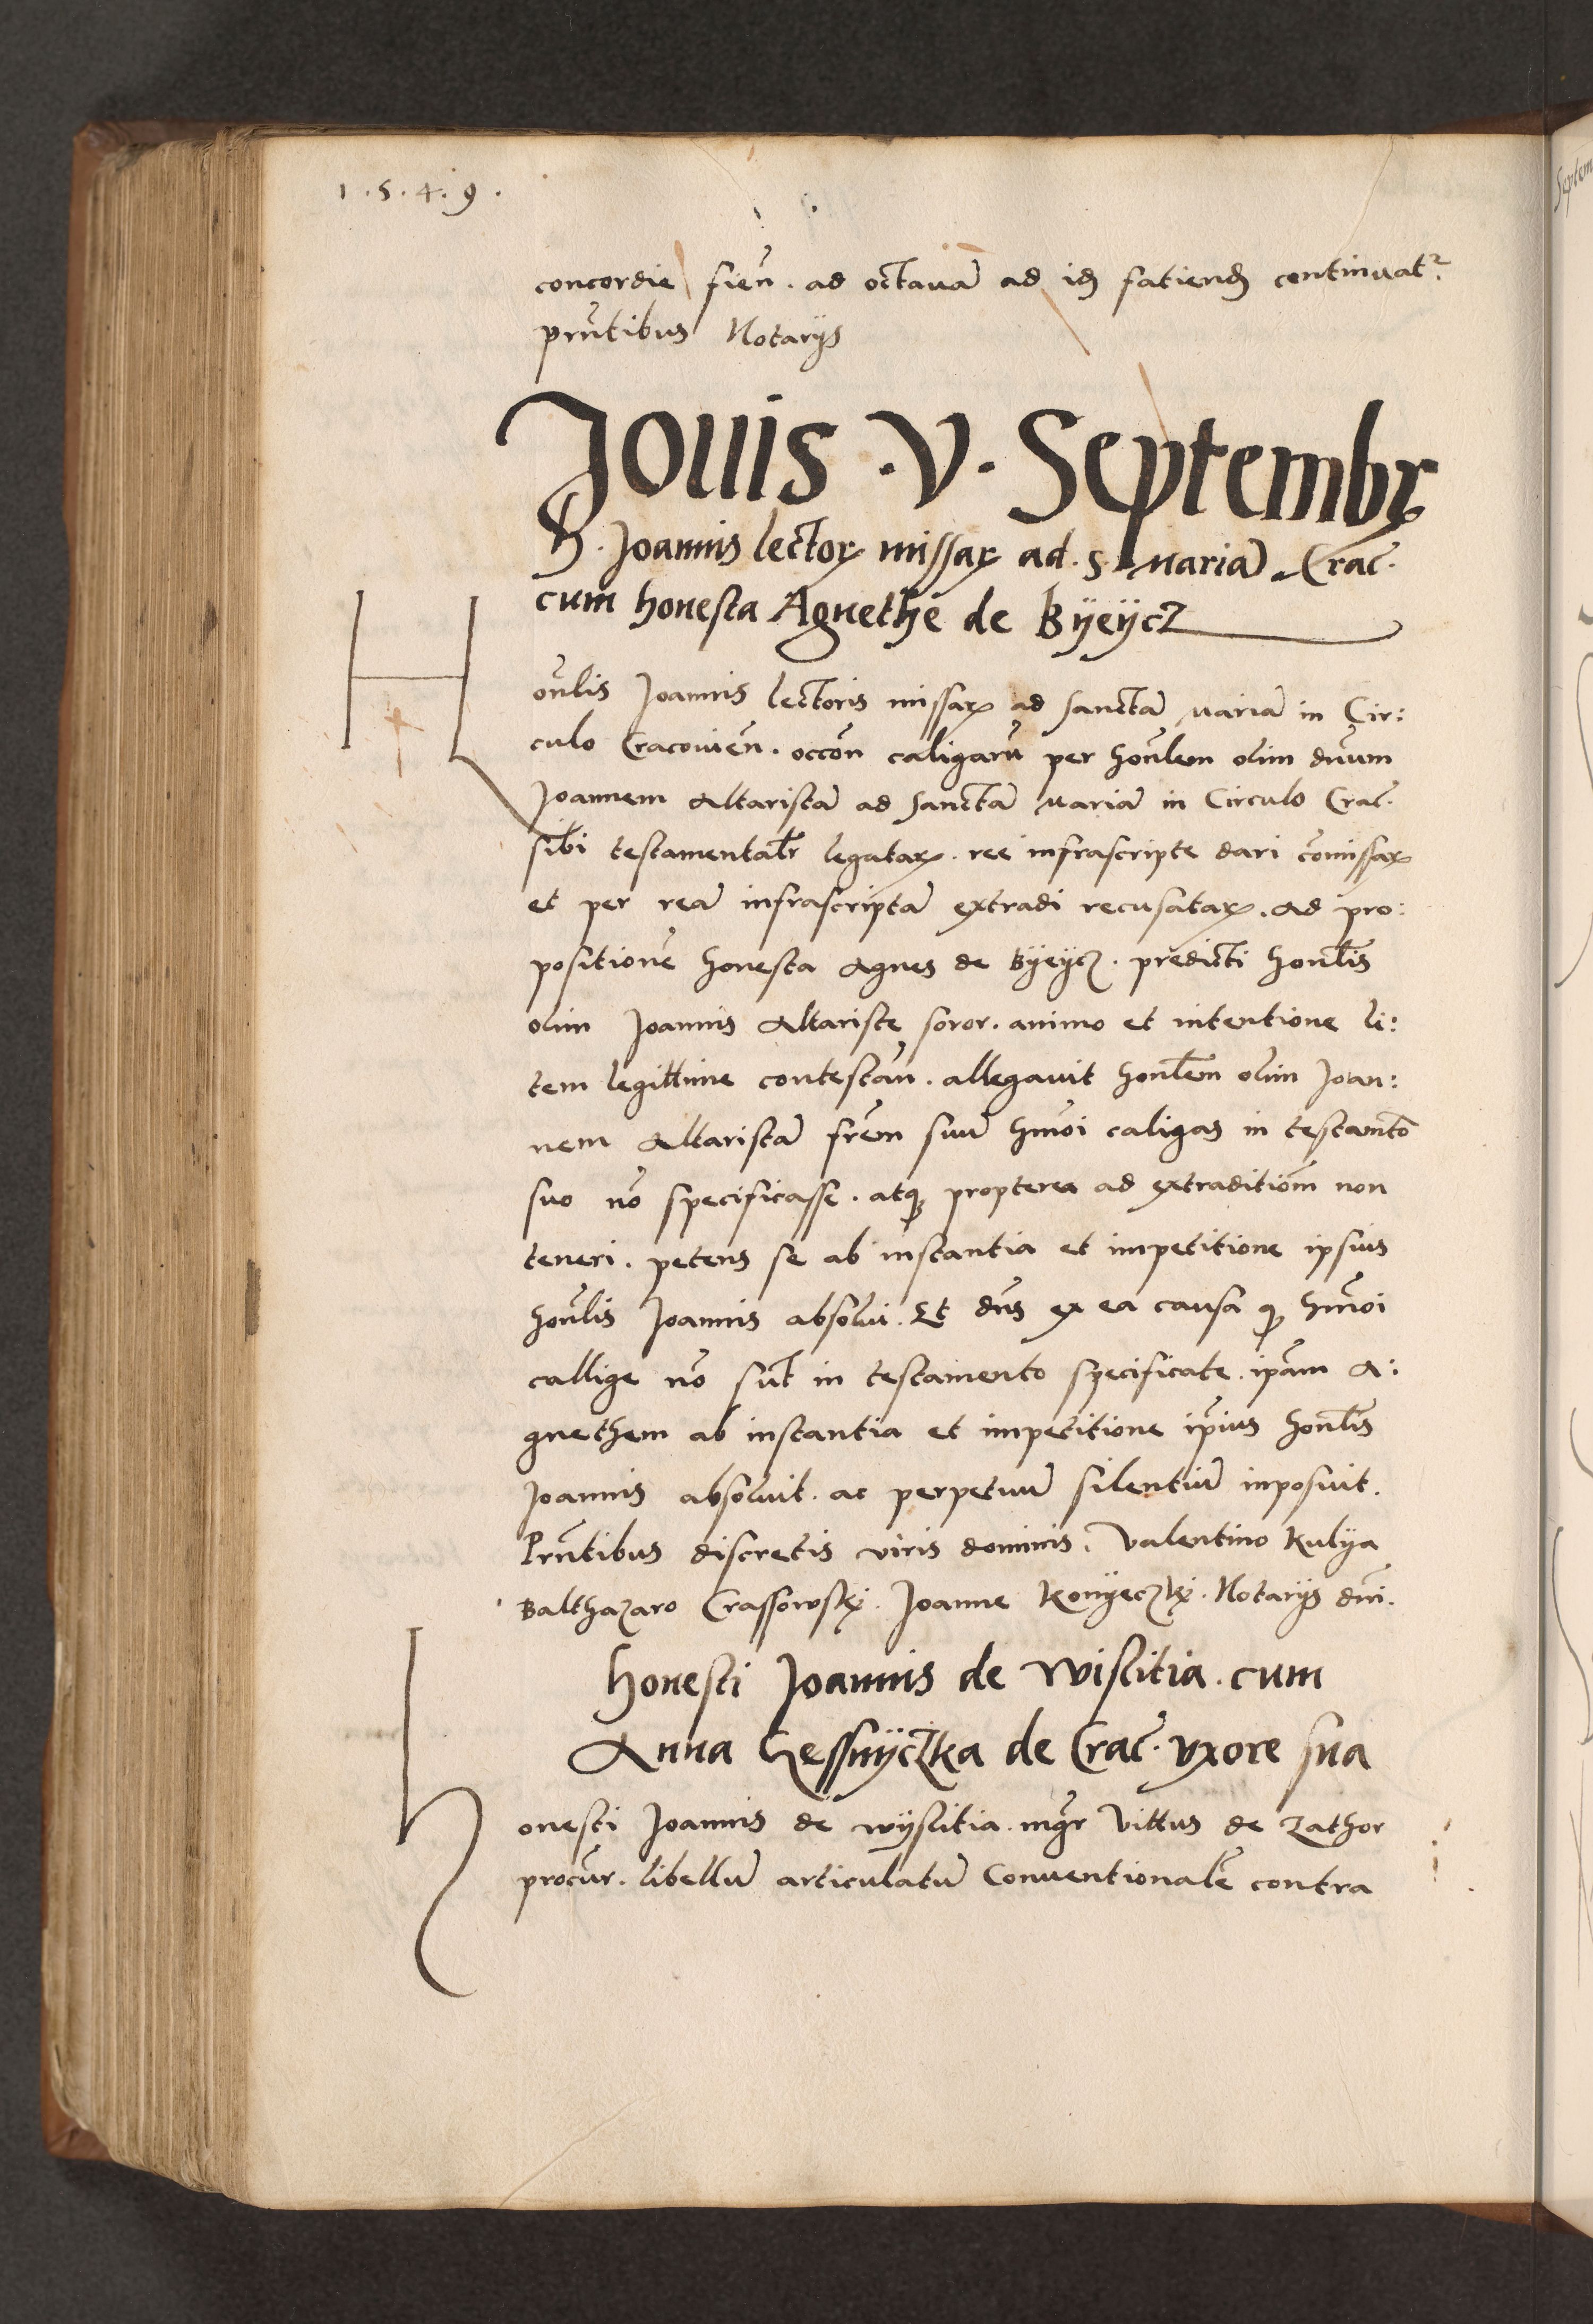 1.5.4.9.
concordie fien̄. ad octauā ad idꝫ fatiendꝫ continuatr
prn̄tibus Notarijs
Jouis .V. Septembꝝ
H. Joannis lectoꝝ missaꝝ ad. S. Mariā Crac̄.
cum honesta Agnethe de Byeycz
Hon̄lis Joannis lectoris missaꝝ ad sanctā Mariā in Cir:
culo Cracouien̄. occōn caligarū per hon̄lem olim dnūm
Joannem Altaristā ad sanctā Mariā in Circulo Crac̄.
sibi testamentalr̄ legataꝝ. ree infrascripte dari cōmissaꝝ
et per reā infrascriptā extradi recusataꝝ. Ad pro:
positionē honesta Agnes de Byeycz. predicti honl̄is
olim Joannis Altariste soror. animo et intentione li:
tem legittime contestan̄. allegauit honl̄em olim Joan:
nem Altaristā frēm suū hmōi caligas in testamt̄o
suo nō specificasse. atqꝫ propterea ad extraditiōm non
teneri. petens se ab instantia et impetitione ipsius
hon̄lis Joannis absolui. Et dn̄s ex ea causa qꝫ hmōi
callige nō sūt in testamento specificate. ipām A:
gnethem ab instantia et impetitione ip̄ius honl̄is
Joannis absoluit. ac perpetuū silentiū inposuit.
Prn̄tibus discretis viris dominis. Valentino Kulya
Balthazaro Crassowskj. Joanne Konyeczkj. Notarijs dnī.
Honesti Joannis de Wislitia. cum
Anna Gessnyczka de Crac̄. vxore sua
Honesti Joannis de Wyslitia. mgr̄ Vittus de Zathor
procūr. libellū articulatū Conuentionalē contra